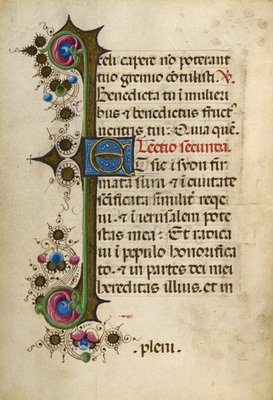 celi capere nō poterant
tuo gremio cōtulisti. ℟.
Benedicta tu ī mulieri
bus & benedictus fructꝰ
uentris tui: Quia quē.
Lectio secunda.
ET sic ī syon fir
mata sum & ī ciuitate
scificata similiř reqe
ui. & ī ierusalem pote
stas mea: Et radica
ui ī populo honorifica
to. & in partes dei mei
hereditas illius. et in
pleni.